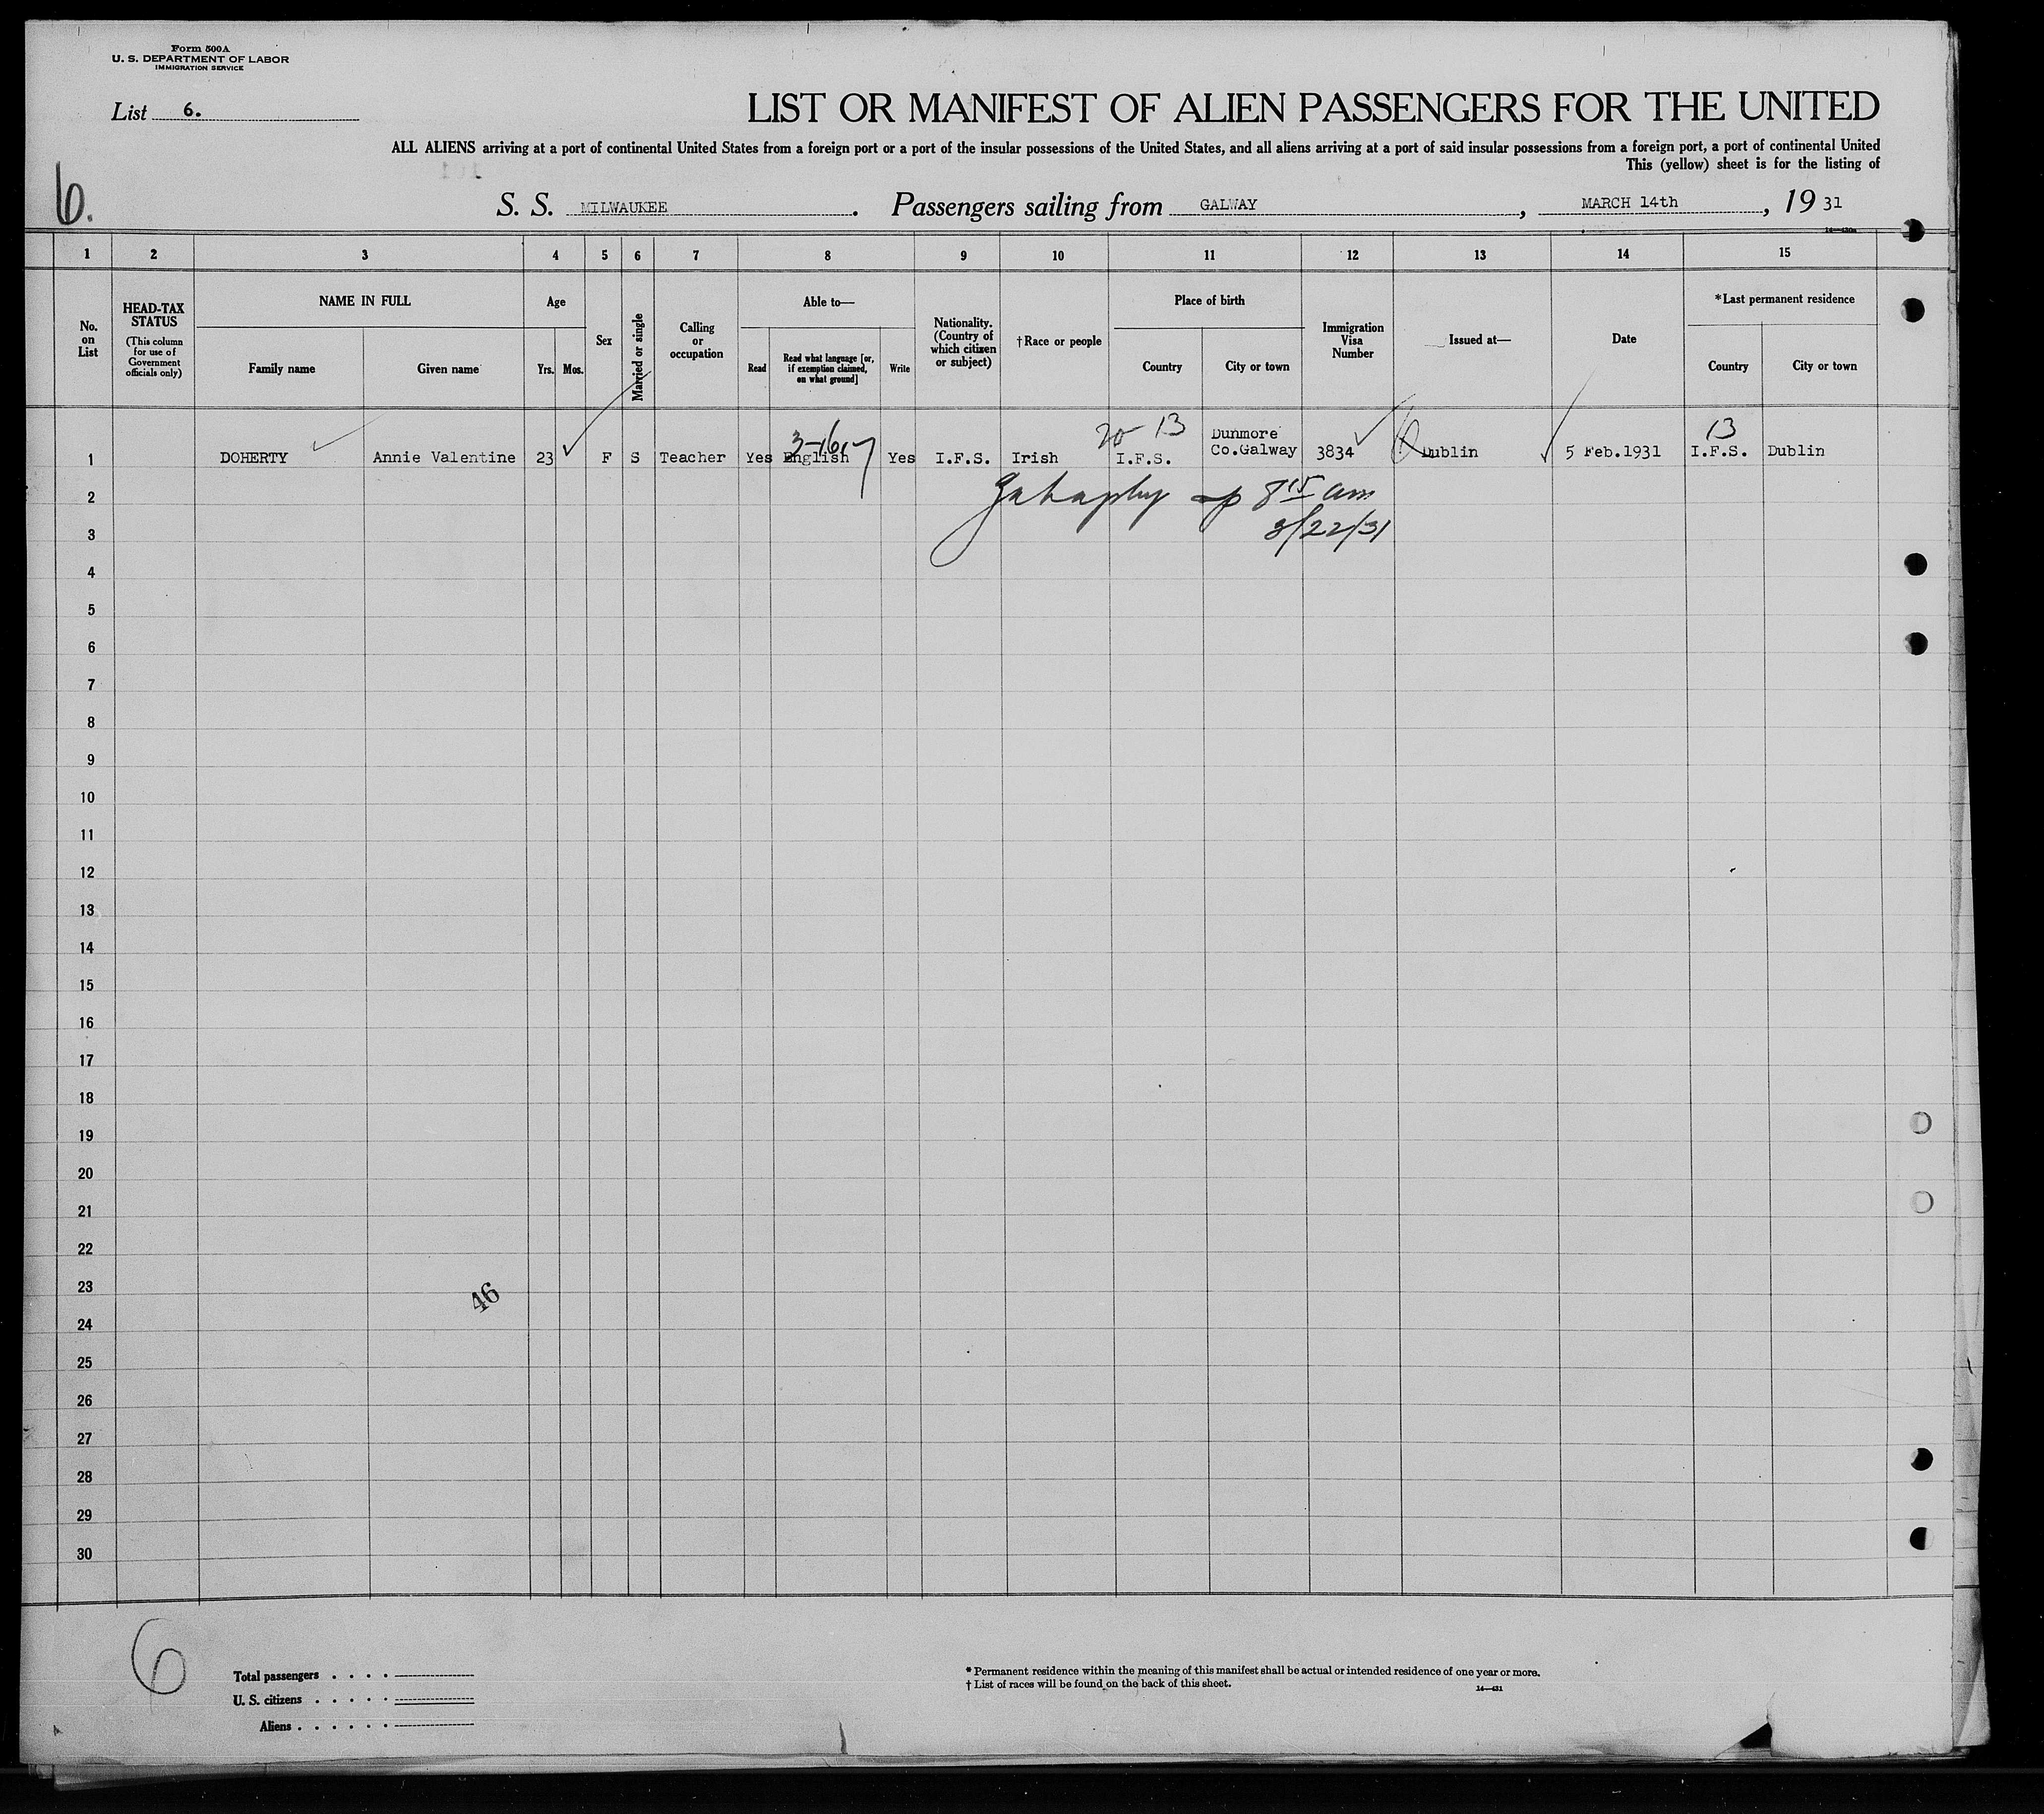 Form 500A
U. S. DEPARTMENT OF LABOR
IMMIGRATION SERVICE
List 6.
LIST OR MANIFEST OF ALIEN PASSENGERS FOR THE UNITED
ALL ALIENS arriving at a port of continental United States from a foreign port or a port of the insular possessions of the United States, and all aliens arriving at a port of said insular possessions from a foreign port, a port of continental United
This (yellow) sheet is for the listing of
6.
S. S. MILWAUKEE. Passengers sailing from GALWAY, MARCH 14th, 19 31
1 2 3 4 5 6 7 8 9 10 11 12 13 14 15
No. on List
HEAD-TAX STATUS
(This column for use of Government officials only)
NAME IN FULL
Family name
Given name
Age
Yrs.
Mos.
Sex
Married or single
Calling or occupation
Able to—
Read
Read what language [or, if exemption claimed, on what ground]
Write
Nationality. (Country of which citizen or subject)
†Race or people
Place of birth
Country
City or town
Immigration Visa Number
Issued at—
Date
*Last permanent residence
Country
City or town
20 13
13
1 DOHERTY Annie Valentine 23 F S Teacher Yes English Yes I.F.S. Irish I.F.S. Dunmore Co.Galway 3834 Dublin 5 Feb.1931 I.F.S. Dublin
2
8 15 am
3
3/22/31
4
5
6
7
8
9
10
11
12
13
14
15
16
17
18
19
20
21
22
23
46
24
25
26
27
28
29
30
6
Total passengers . . . .
U. S. citizens . . . . .
Aliens . . . . . .
* Permanent residence within the meaning of this manifest shall be actual or intended residence of one year or more.
† List of races will be found on the back of this sheet.
14—431